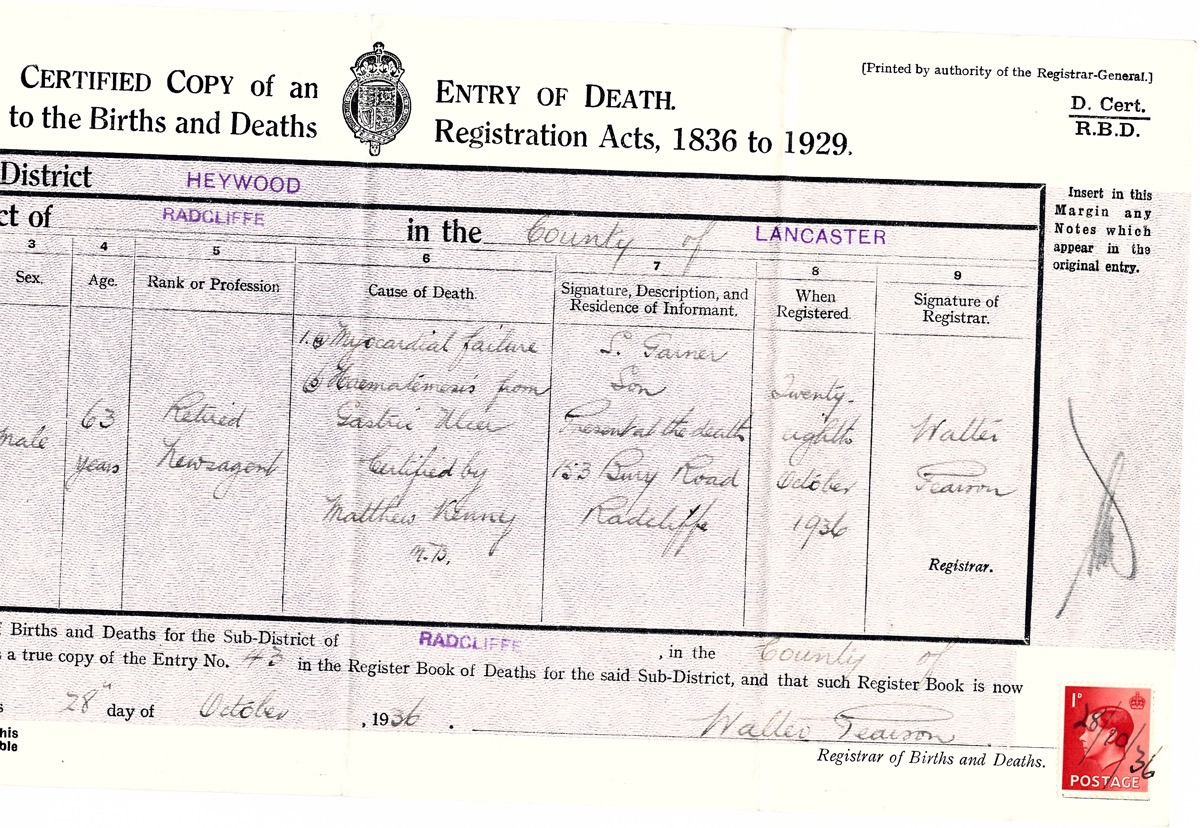 [Printed by authority of the Registrar-General.]
CERTIFIED COPY of an ENTRY OF DEATH.
D. Cert.
R.B.D.
to the Births and Deaths Registration Acts, 1836 to 1929.
District HEYWOOD
Insert in this
Margin any
Notes which
appear in the
original entry.
ct of RADCLIFFE in the County of LANCASTER
3 4 5 6 7 8 9
Sex. Age. Rank or Profession Cause of Death. Signature, Description, and Residence of Informant. When Registered. Signature of Registrar.
male
63
years
Retired
Newsagent
1.(a) Myocardial failure
(b) Haematemesis from
Gastric Ulcer
Certified by
Matthew Kenny
M.B.
S. Garner
Son
Present at the death
153 Bury Road
Radcliffe
Twenty-
eighth
October
1936
Walter
Pearson
Registrar.
Births and Deaths for the Sub-District of RADCLIFFE, in the County of
s a true copy of the Entry No. 43 in the Register Book of Deaths for the said Sub-District, and that such Register Book is now
s 28" day of October, 1936.
Walter Pearson
his
ble
Registrar of Births and Deaths.
1D
28/10/36
POSTAGE